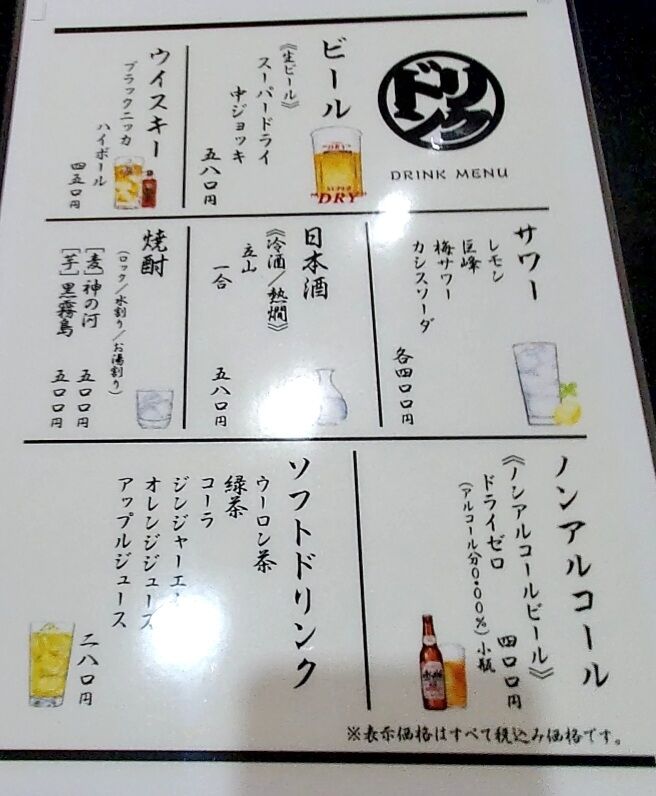 ドリンク
DRINK MENU
ビール
《生ビール》
スーパードライ
中ジョッキ
五八〇円
DRY
SUPER
DRY
ウイスキー
ブラックニッカ
ハイボール
四五〇円
サワー
レモン
巨峰
梅サワー
カシスソーダ
各四〇〇円
日本酒
《冷酒/熱燗》
立山
一合
五八〇円
焼酎
(ロック/水割り/お湯割り)
[麦]神の河 五〇〇円
[芋]黒霧島 五〇〇円
ノンアルコール
《ノンアルコールビール》
ドライゼロ 四〇〇円
(アルコール分0.00%)小瓶
ソフトドリンク
ウーロン茶
緑茶
コーラ
ジンジャーエ
オレンジジュース
アップルジュース
二八〇円
※表示価格はすべて税込み価格です。